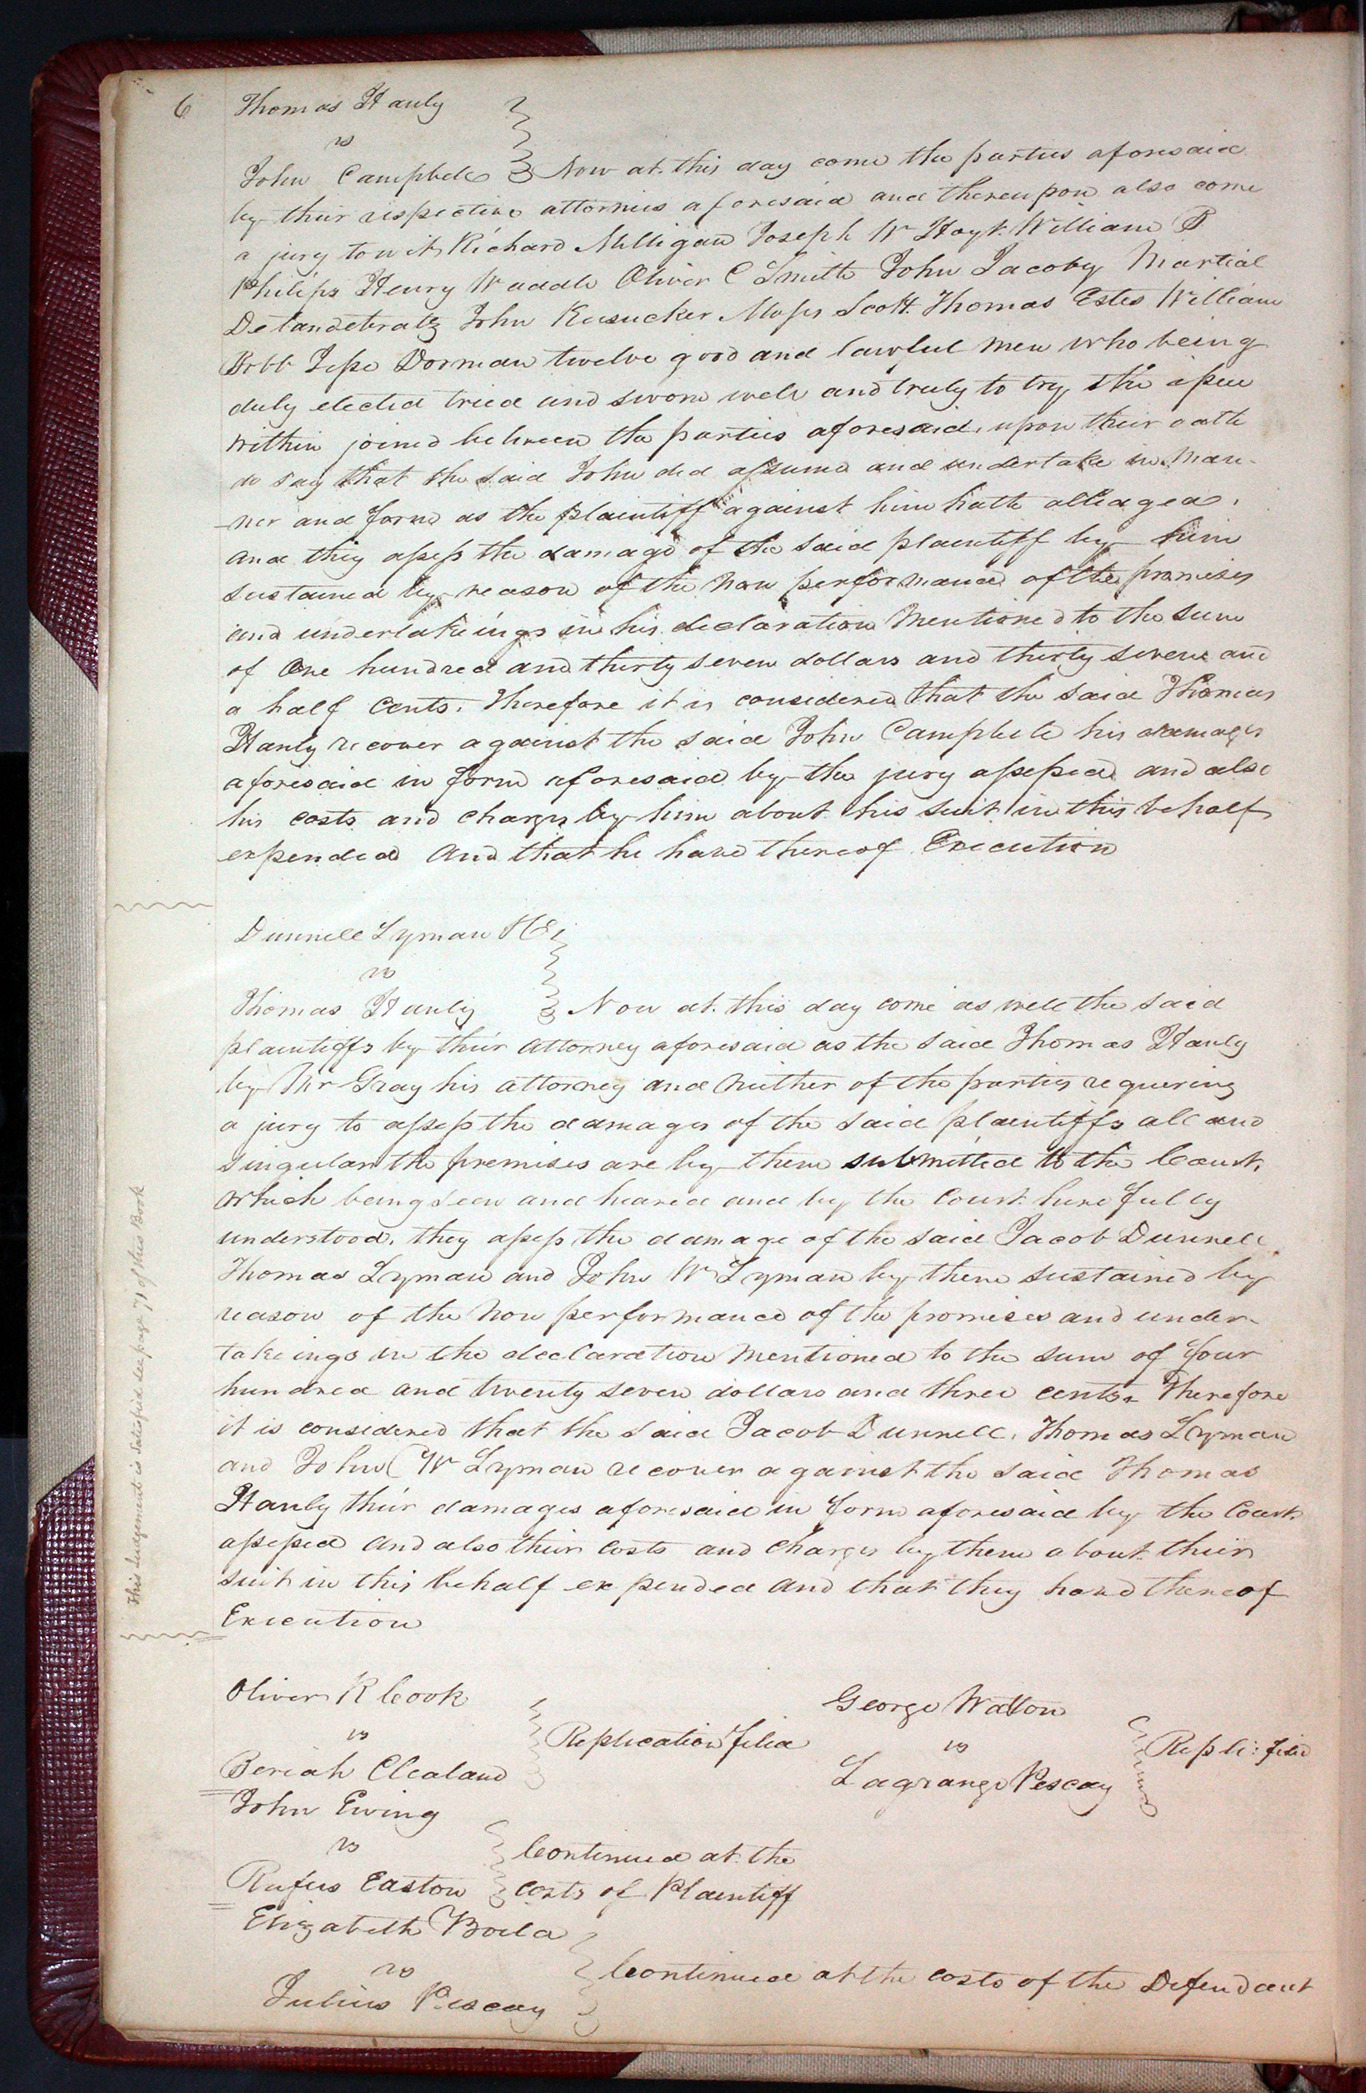 6
Thomas Hanly
vs
John Campbell } Now at this day come the parties aforesaid
by their respective attornies aforesaid and thereupon also come
a jury to wit Richard Milligan Joseph W Hoyt William P
Philips Henry Waddle Oliver C Smith John Jacoby Martial
Detandebratz John Kusucker Moses Scott Thomas Estes William
Bobb Jesse Dorman twelve good and lawful men who being
duly elected tried and sworn well and truly to try the issue
within joined between the parties aforesaid, upon their oath
do say that the said John did assume and undertake in man-
-ner and form as the plaintiff against him hath alleaged.
and they assess the damage of the said plaintiff by him
sustained by reason of the non performance of the promises
and undertakeings in his declaration mentioned to the sum
of One hundred and thirty seven dollars and thirty seven and
a half Cents. Therefore it is considered that the said Thomas
Hanly recover against the said John Campbell his damages
aforesaid in form aforesaid by the jury assessed and also
his costs and charges by him about his suit in this behalf
expended And that he have thereof Execution
Dunnell Lyman &C
vs
Thomas Hanly } Now at this day come as well the said
plaintiffs by their attorney aforesaid as the said Thomas Hanly
by Mr Gray his attorney and neither of the parties requering
a jury to assess the damages of the said plaintiffs all and
singular the premises are by them submitted to the Court,
which being seen and heared and by the Court here fully
understood, they assess the damage of the said Jacob Dunnell
Thomas Lyman and John W Lyman by them sustained by
reason of the non performance of the promises and under-
takeings in the declaration mentioned to the sum of four
hundred and twenty seven dollars and three cents. Therefore
it is considered that the said Jacob Dunnell, Thomas Lyman
and John W Lyman recover against the said Thomas
Hanly their damages aforesaid in form aforesaid by the Court
assessed and also their costs and charges by them about their
suit in this behalf expended and that they have thereof
Execution
This Judgement is satisfied see page 71 of this Book
Oliver R Cook
vs
Beriah Clealand } Replication filed
George Walton
vs
Lagrange Pescay } Repli: filed
John Ewing
vs
Rufus Easton } Continued at the
costs of Plaintiff
Elizabeth Boila
vs
Julius Pescay } Continued at the costs of the Defendant